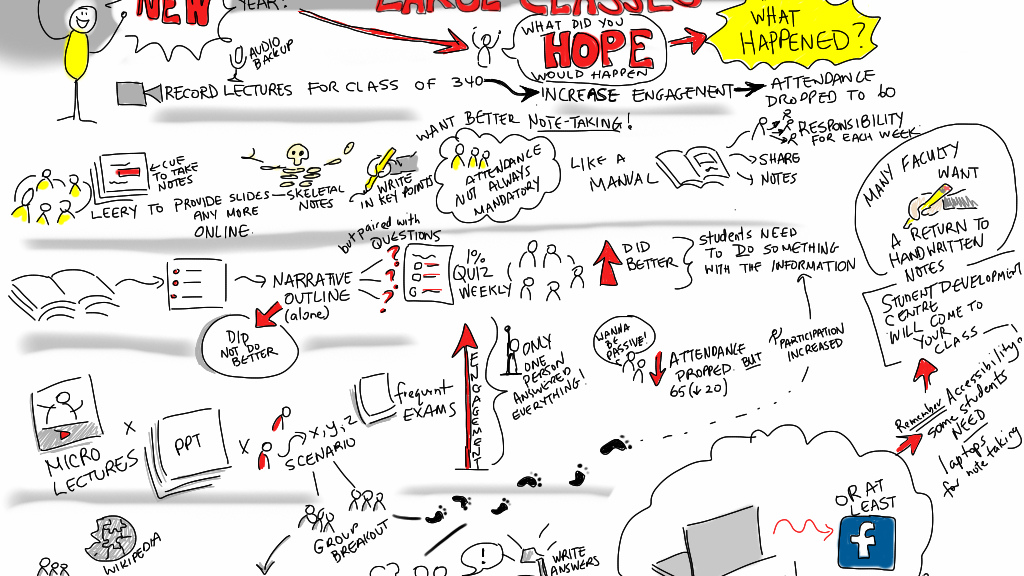 NEW
YEAR?
LARGE CLASSES
WHAT DID YOU
HOPE
WOULD HAPPEN
WHAT
HAPPENED?
AUDIO
BACKUP
RECORD LECTURES FOR CLASS OF 340
INCREASE ENGAGEMENT
ATTENDANCE
DROPPED TO 60
WANT BETTER NOTE-TAKING!
CUE
TO TAKE
NOTES
LEERY TO PROVIDE SLIDES
ANY MORE
ONLINE.
SKELETAL
NOTES
WRITE
IN KEY POINTS
ATTENDANCE
NOT ALWAYS
MANDATORY
LIKE A
MANUAL
RESPONSIBILITY
FOR EACH WEEK
SHARE
NOTES
MANY FACULTY
WANT
A RETURN TO
HANDWRITTEN
NOTES
NARRATIVE
OUTLINE
(alone)
but paired with
QUESTIONS
?
?
?
1%
QUIZ
WEEKLY
DID
BETTER
students NEED
TO DO SOMETHING
WITH THE INFORMATION
DID
NOT DO
BETTER
STUDENT DEVELOPMENT
CENTRE
WILL COME TO
YOUR
CLASS
ENGAGEMENT
ONLY
ONE
PERSON
ANSWERED
EVERYTHING!
WANNA
BE
PASSIVE!
ATTENDANCE
DROPPED BUT
65 (↓20)
PARTICIPATION
INCREASED
MICRO
LECTURES
X
PPT
X
x, y, z
SCENARIO
frequent
EXAMS
Remember Accessibility!
some students
NEED
laptops
for note taking
WIKIPEDIA
GROUP
BREAKOUT
!
WRITE
ANSWERS
OR AT
LEAST
f